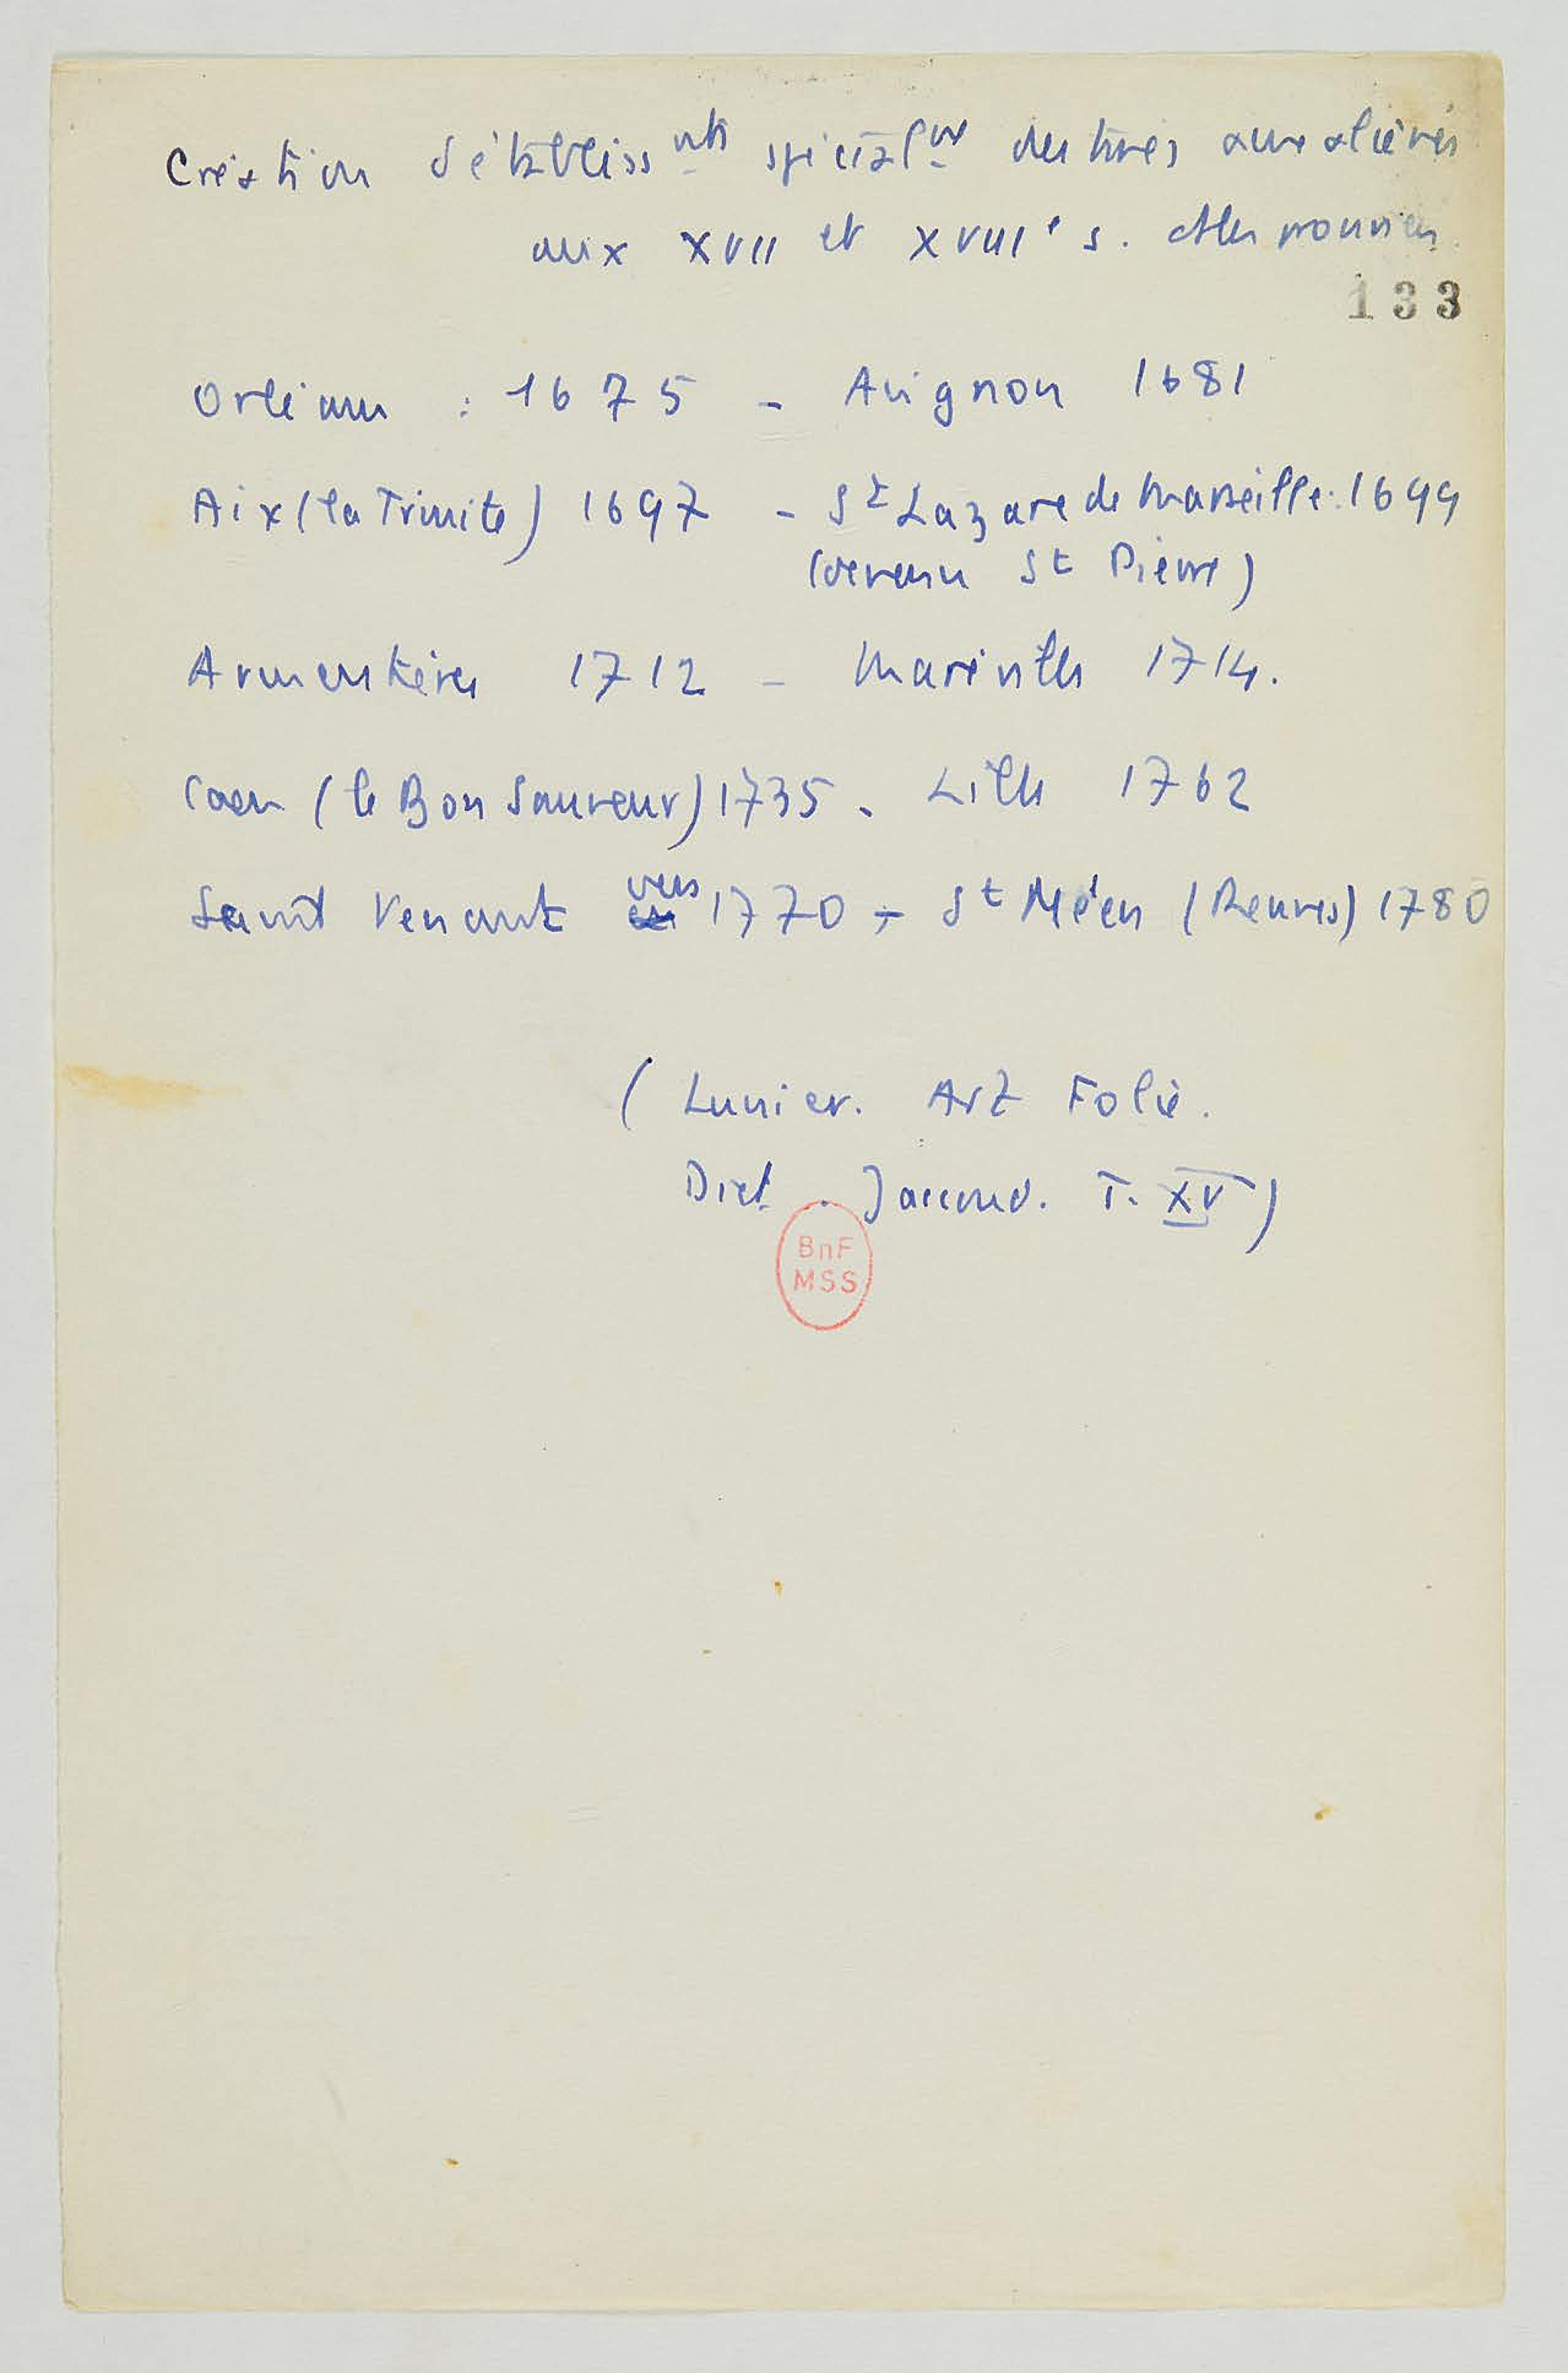 Création d'établiss nts spécialnt destinés aux aliénés
aux XVII et XVIII e s.
133
Orléans : 1675 - Avignon 1681
Aix (la Trinité) 1697 - St Lazare de Marseille : 1699
(devenu St Pierre)
Armentières 1712 - Maréville 1714.
Caen (le Bon Sauveur) 1735. Lille 1762
Saint Venant vers 1770 - St Méen (Rennes) 1780
( Lunier. Art Folie.
Dict. Jaccoud. T. XV )
BnF
MSS